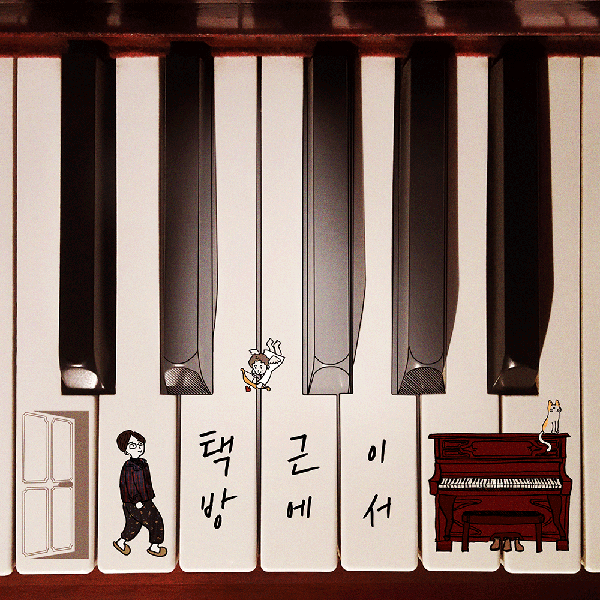 택근이
방에서